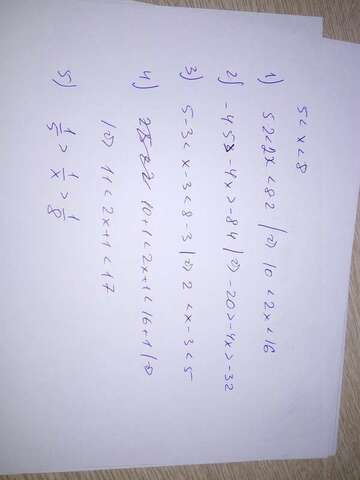 5 < x < 8
1) 5 2 < 2x < 8 2 | (=) 10 < 2x < 16
2) -4 5 -4x > -8 4 | (=) -20 > -4x > -32
3) 5-3 < x-3 < 8-3 | (=) 2 < x-3 < 5
4) 10+1 < 2x+1 < 16+1 | (=)
(=) 11 < 2x+1 < 17
5) 1/5 > 1/x > 1/8